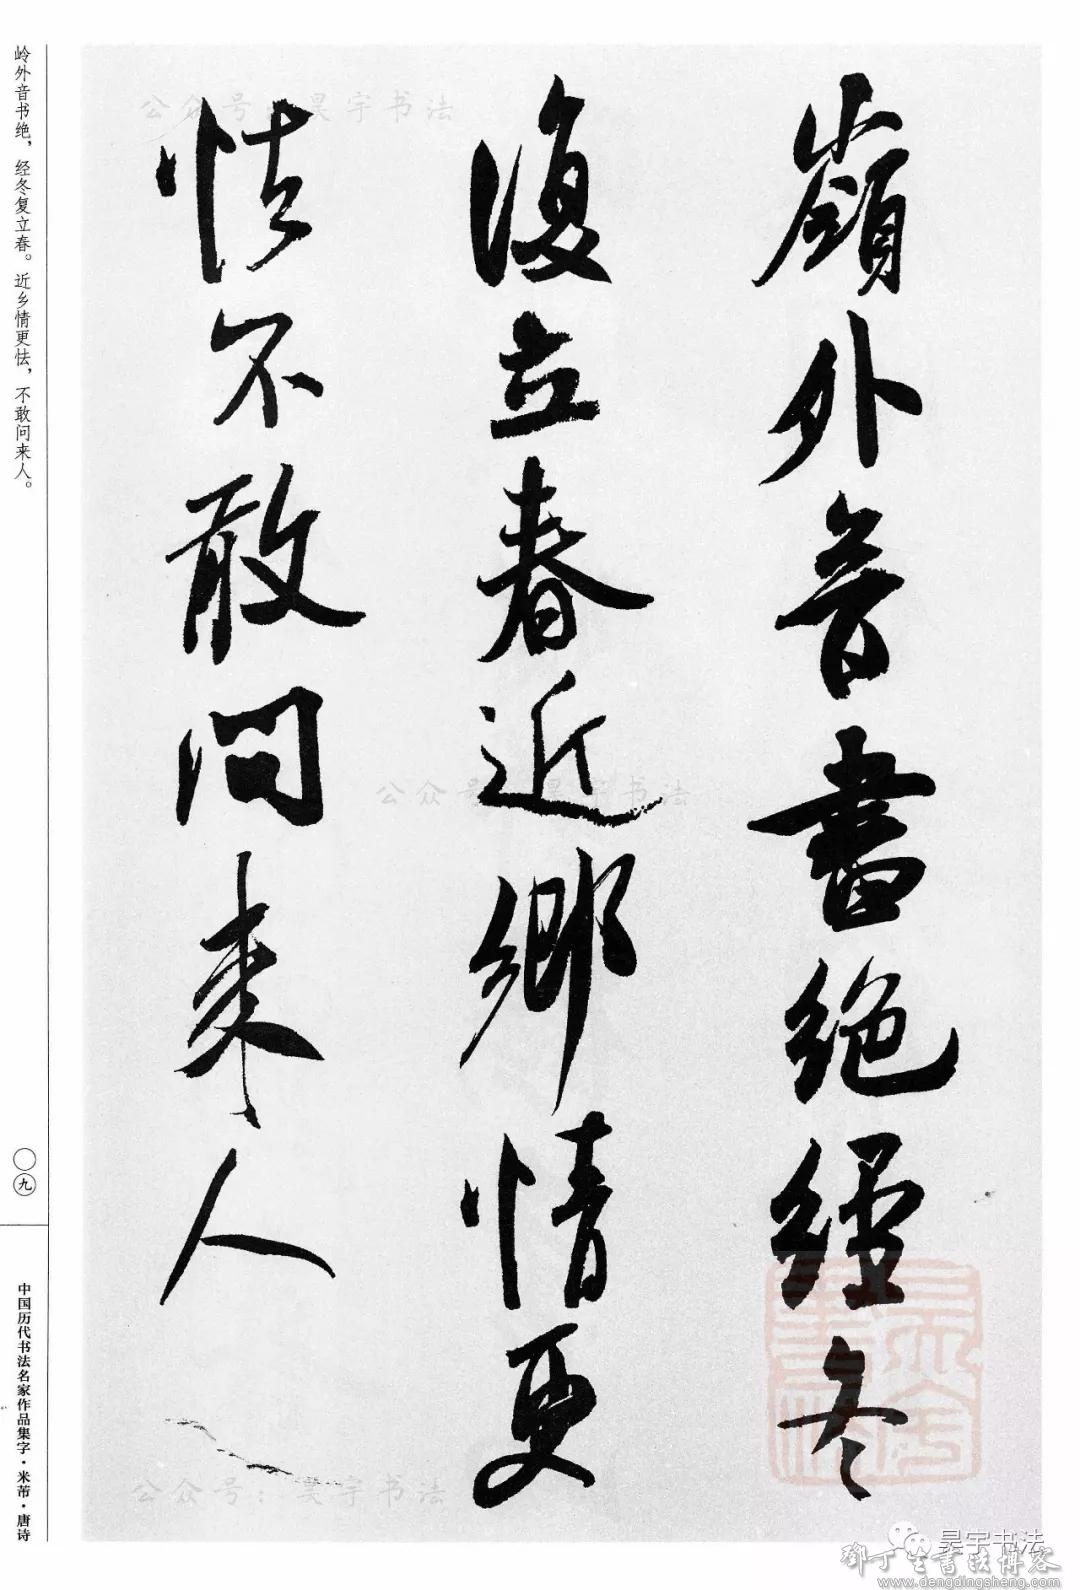 嶺外音書絶經冬
復立春近鄉情更
怯不敢问来人
岭外音书绝，经冬复立春。近乡情更怯，不敢问来人。
〇九
中国历代书法名家作品集字·米芾·唐诗
公众号：昊宇书法
公众号：昊宇书法
公众号：昊宇书法
昊宇书法
邓丁生书法博客
www.dengdingsheng.com